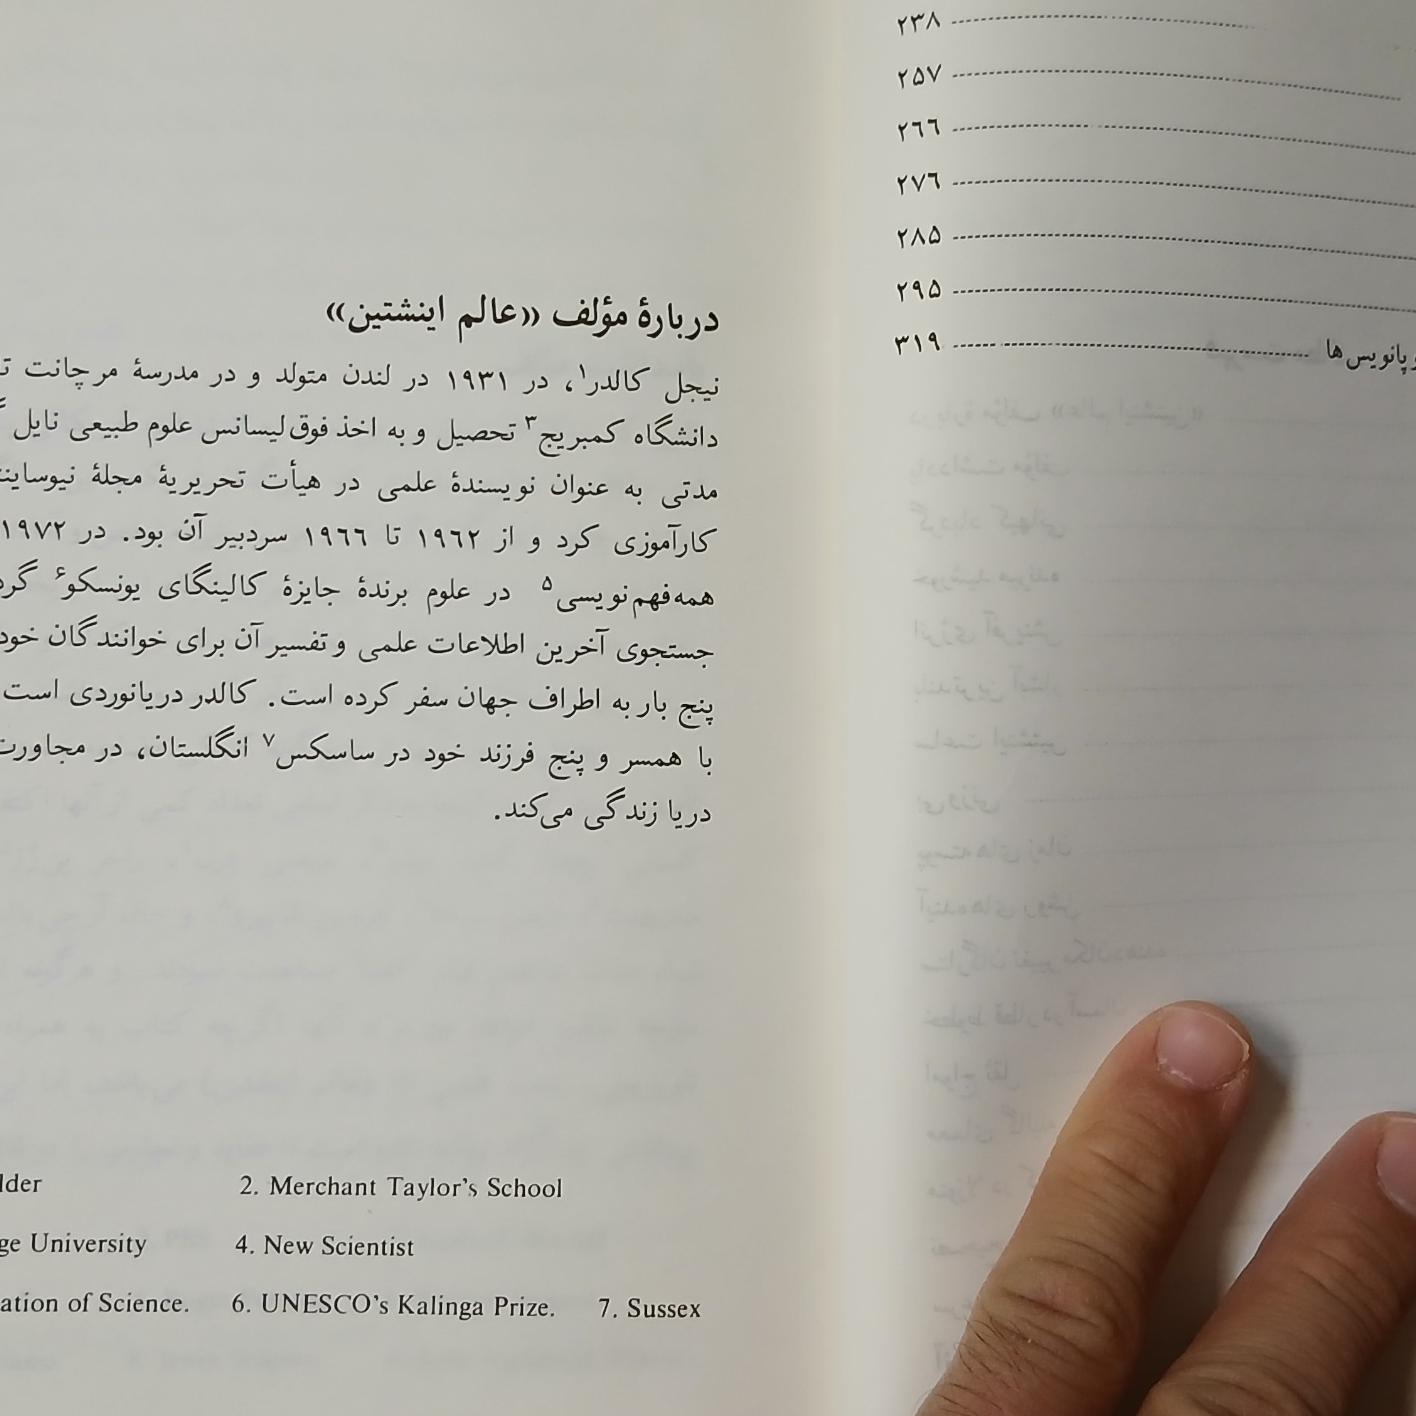 ۲۳۸
۲۵۷
۲۶۶
۲۷۶
۲۸۵
۲۹۵
پانویس‌ها ۳۱۹
دربارهٔ مؤلف «عالم اینشتین»
نیجل کالدر۱، در ۱۹۳۱ در لندن متولد و در مدرسهٔ مرچانت
دانشگاه کمبریج۳ تحصیل و به اخذ فوق‌لیسانس علوم طبیعی نایل
مدتی به عنوان نویسندهٔ علمی در هیأت تحریریهٔ مجلهٔ
کارآموزی کرد و از ۱۹۶۲ تا ۱۹۶۶ سردبیر آن بود. در ۱۹۷۲
همه‌فهم‌نویسی۵ در علوم برندهٔ جایزهٔ کالینگای یونسکو۶
جستجوی آخرین اطلاعات علمی و تفسیر آن برای خوانندگان خود
پنج بار به اطراف جهان سفر کرده است. کالدر دریانوردی است
با همسر و پنج فرزند خود در ساسکس۷ انگلستان، در مجاورت
دریا زندگی می‌کند.
lder 2. Merchant Taylor's School
ge University 4. New Scientist
ation of Science. 6. UNESCO's Kalinga Prize. 7. Sussex